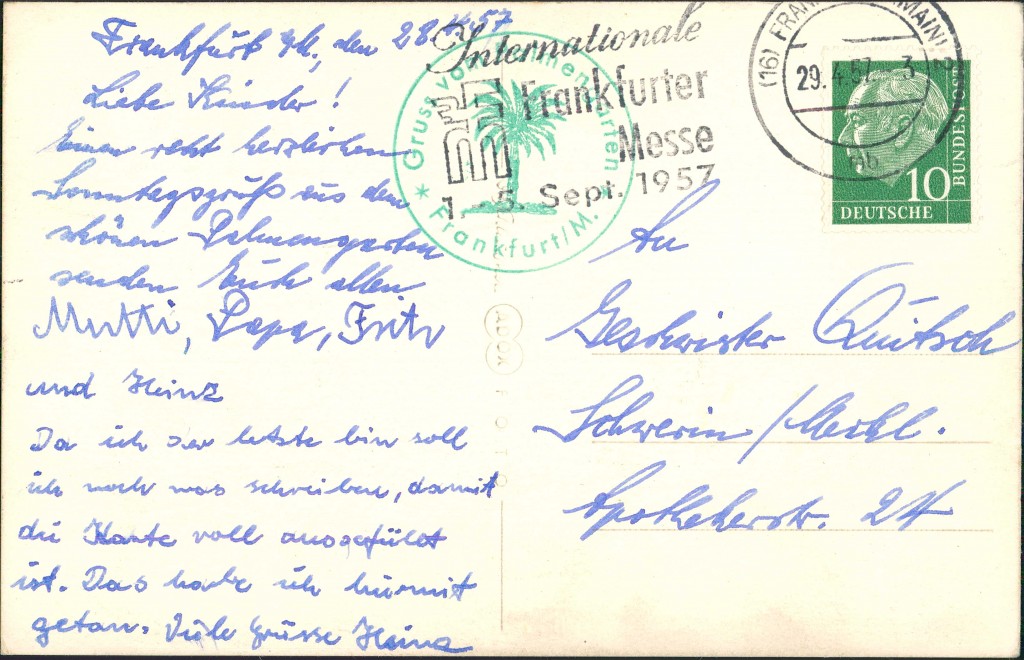 Frankfurt /M., den 28.4.57
Liebe Kinder!
Einen recht herzlichen
Sonntagsgruß aus dem
schönen Palmengarten
senden Euch allen
Mutti, Papa, Fritz
und Heinz
Da ich der letzte bin soll
ich noch was schreiben, damit
die Karte voll ausgefüllt
ist. Das habe ich hiermit
getan. Viele Grüsse Heinz
* Gruss vom Palmengarten *
Frankfurt/M.
Internationale
Frankfurter
Messe
1.-5. Sept. 1957
(16) FRANKFURT (MAIN) 2
29.4.57. 3
BUNDESPOST
10
DEUTSCHE
An
Geschwister Quitsch
Schwerin /Meckl.
Apothekerstr. 24